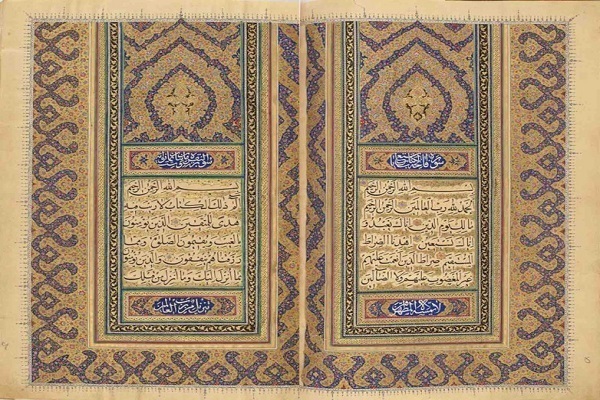 سورة فاتحة الكتاب
بسم الله الرحمن الرحيم
الحمد لله رب العالمين الرحمن الرحيم
مالك يوم الدين اياك نعبد و
اياك نستعين اهدنا الصراط
المستقيم صراط الذين انعمت عليهم
غير المغضوب عليهم ولا الضالين
لا يمسه الا المطهرون
بسم الله الرحمن الرحيم
الم ذلك الكتاب لا ريب فيه
هدى للمتقين الذين يؤمنون
بالغيب ويقيمون الصلوة ومما
رزقناهم ينفقون والذين يؤمنون
بما انزل اليك وما انزل من قبلك
تنزيل من رب العالمين